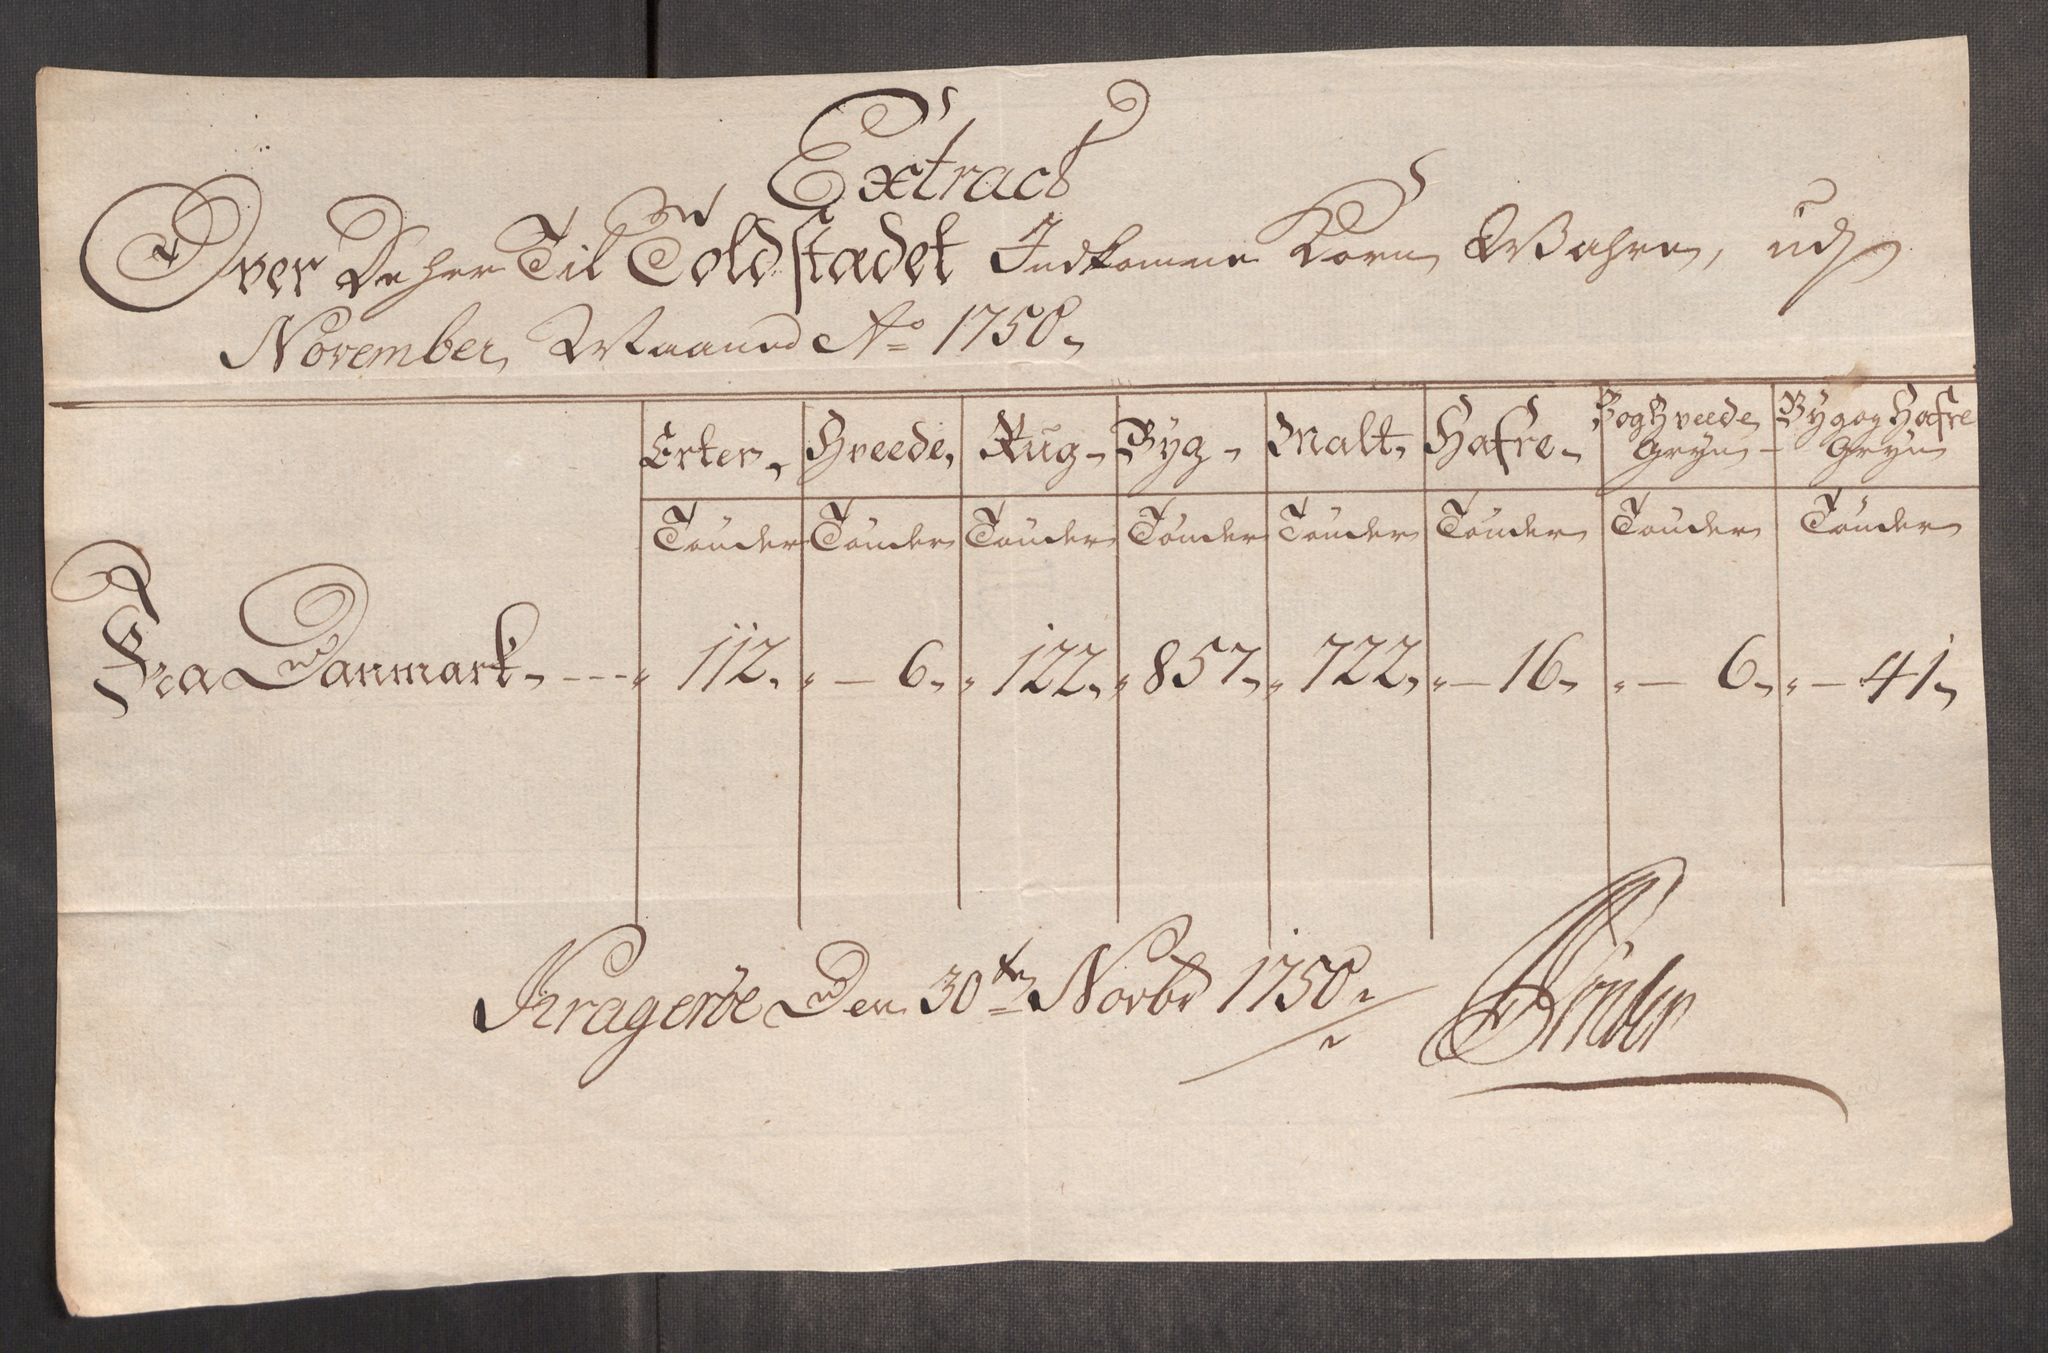 Extract
Over De her Til Toldstædet Indkomne Korn Wahre, udj
November Maaned Ao 1750
Erter Hveede Rug Byg Malt Hafre BogHveede Gryn Byg og Hafre Gryn
Tønder Tønder Tønder Tønder Tønder Tønder Tønder Tønder
Fra Danmark --- 112 6 122 857 722 16 6 41
Kragerøe Den 30te Novbr 1750